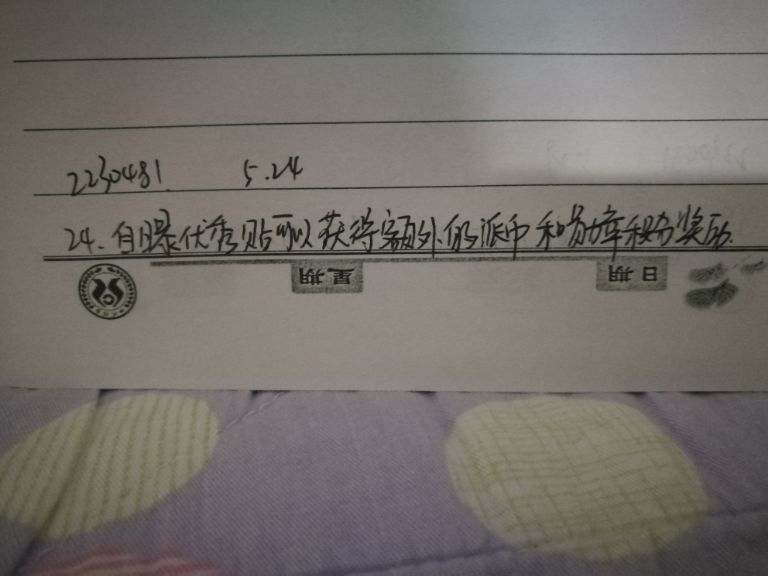 2230481 5.24
24. 自曝优秀贴可以获得额外的派币和勋章积分奖励.
星期 日期